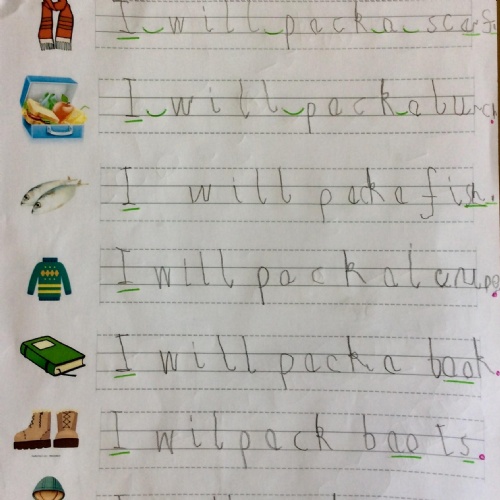 I will pack a scarf.
I will pack a lunch.
I will pack a fish.
I will pack a
I will pack a book.
I wil pack boots.